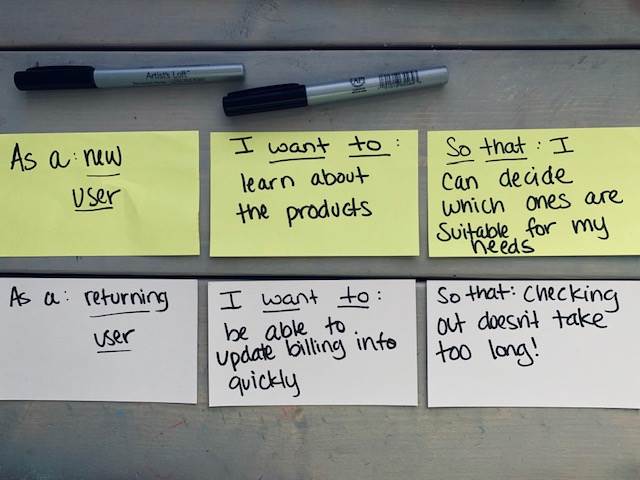 Artist's Loft
AP
As a: new
user
I want to:
learn about
the products
So that: I
can decide
which ones are
suitable for my
needs
As a: returning
user
I want to:
be able to
update billing info
quickly
So that: checking
out doesn't take
too long!